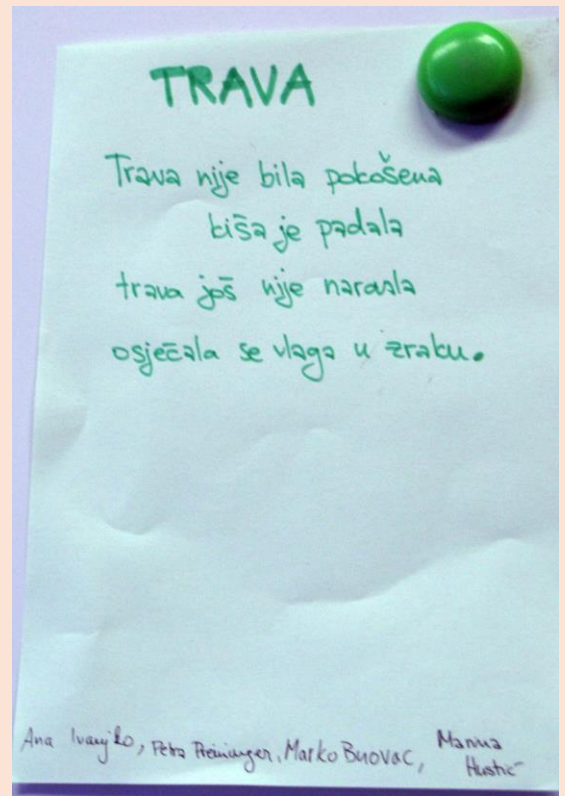 TRAVA
Trava nije bila pokošena
kiša je padala
trava još nije narasla
osjećala se vlaga u zraku.
Ana Ivanjko, Petra Preininger, Marko Buovac, Marina